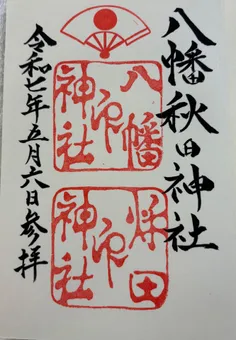 八幡秋田神社
八幡
印
神社
秋田
印
神社
令和七年五月六日参拝